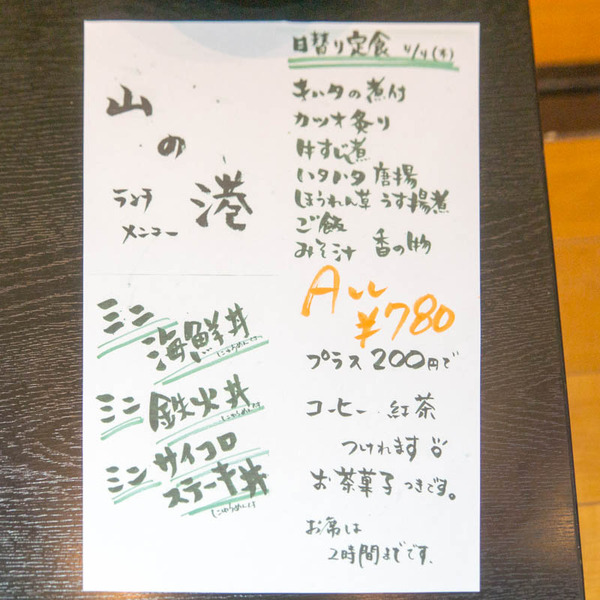 山の港
ランチ
メニュー
ミニ
海鮮丼
ミニ 鉄火丼
ミニ サイコロ
ステーキ丼
日替り定食 4/4(木)
赤い夕の煮付
カツオ炙り
牛すじ煮
ハタハタ 唐揚
ほうれん草 うす揚煮
ご飯
みそ汁 香の物
All
¥780
プラス 200円で
コーヒー 紅茶
つけれます
お茶菓子つきです。
お席は
2時間までです。